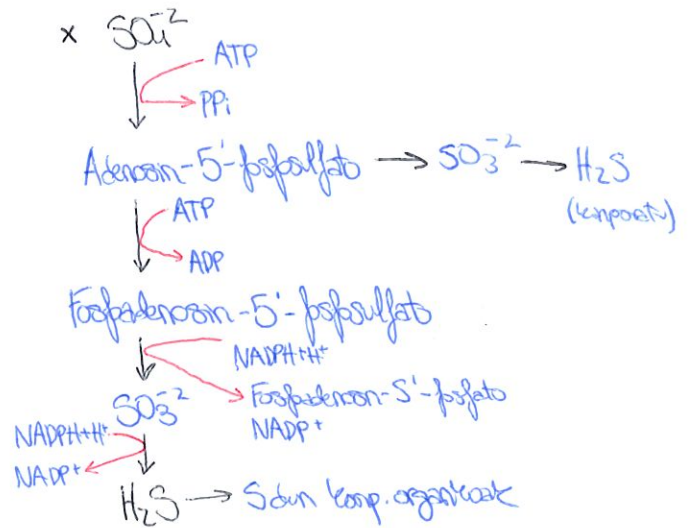 x SO₄⁻²
ATP
PPi
Adenosin-5'-fosfosulfato → SO₃⁻² → H₂S
(kanporatu)
ATP
ADP
Fosfoadenosin-5'-fosfosulfato
NADPH+H⁺
SO₃⁻² Fosfoadenosin-5'-fosfato
NADPH+H⁺ NADP⁺
NADP⁺
H₂S → S dun konp. organikoak